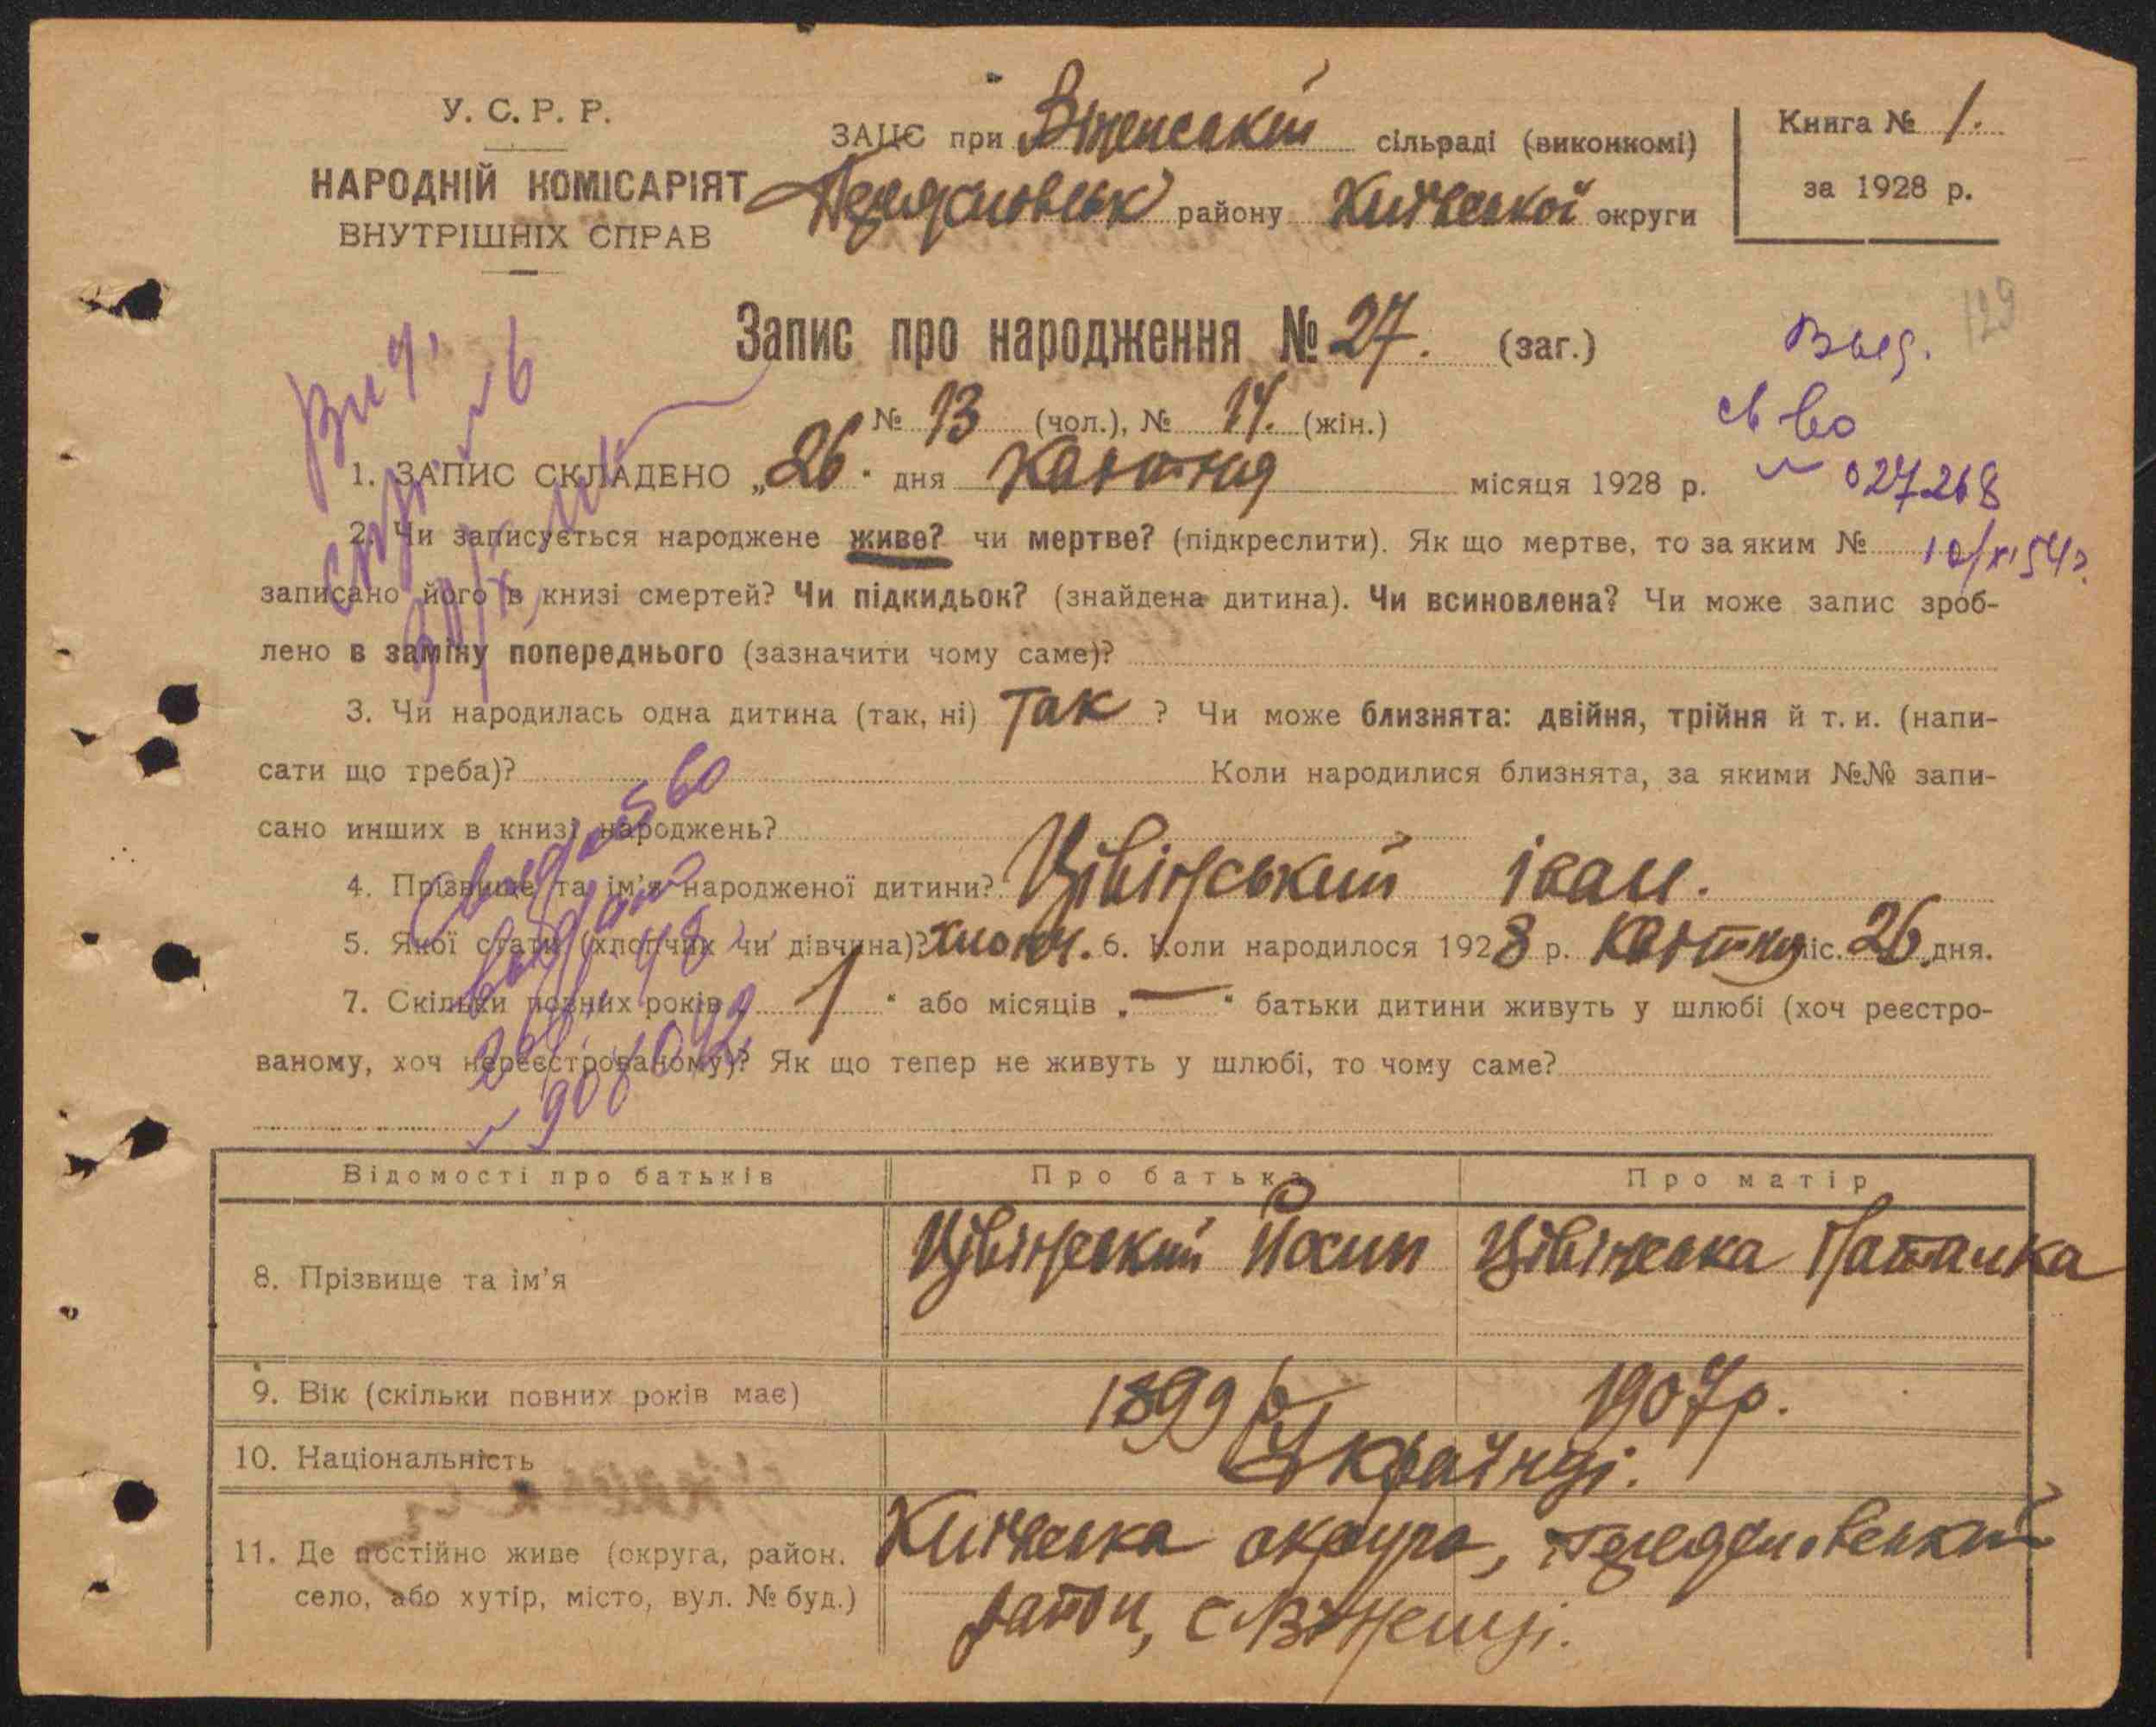 У. С. Р. Р.
НАРОДНІЙ КОМІСАРІЯТ
ВНУТРІШНІХ СПРАВ
ЗАЦС при сільраді (виконкомі)
району Київської округи
Книга № 1.
за 1928 р.
129
Запис про народження № 27. (заг.)
№ 13 (чол.), № 14. (жін.)
Выд.
св во
027268
10/XI 54 г.
1. ЗАПИС СКЛАДЕНО „26" дня жовтня місяця 1928 р.
2. Чи записується народжене живе? чи мертве? (підкреслити). Як що мертве, то за яким №
записано його в книзі смертей? Чи підкидьок? (знайдена дитина). Чи всиновлена? Чи може запис зроб-
лено в заміну попереднього (зазначити чому саме)?
3. Чи народилась одна дитина (так, ні) Так ? Чи може близнята: двійня, трійня й т. и. (напи-
сати що треба)? Коли народилися близнята, за якими №№ запи-
сано инших в книзі народжень?
4. Прізвище та ім'я народженої дитини? Цівінський Іван.
5. Якої статі (хлопчик чи дівчина)? хлопч. 6. Коли народилося 1928 р. жовтня міс. 26 дня.
7. Скільки повних років 1 " або місяців „ — " батьки дитини живуть у шлюбі (хоч реєстро-
ваному, хоч нереєстрованому)? Як що тепер не живуть у шлюбі, то чому саме?
Відомості про батьків Про батька Про матір
8. Прізвище та ім'я Цівінський Йосип Цівінська Наталка
9. Вік (скільки повних років має) 1899 р. 1907 р.
10. Національність Українці.
11. Де постійно живе (округа, район, Київська округа,
село, або хутір, місто, вул. № буд.) район, с.